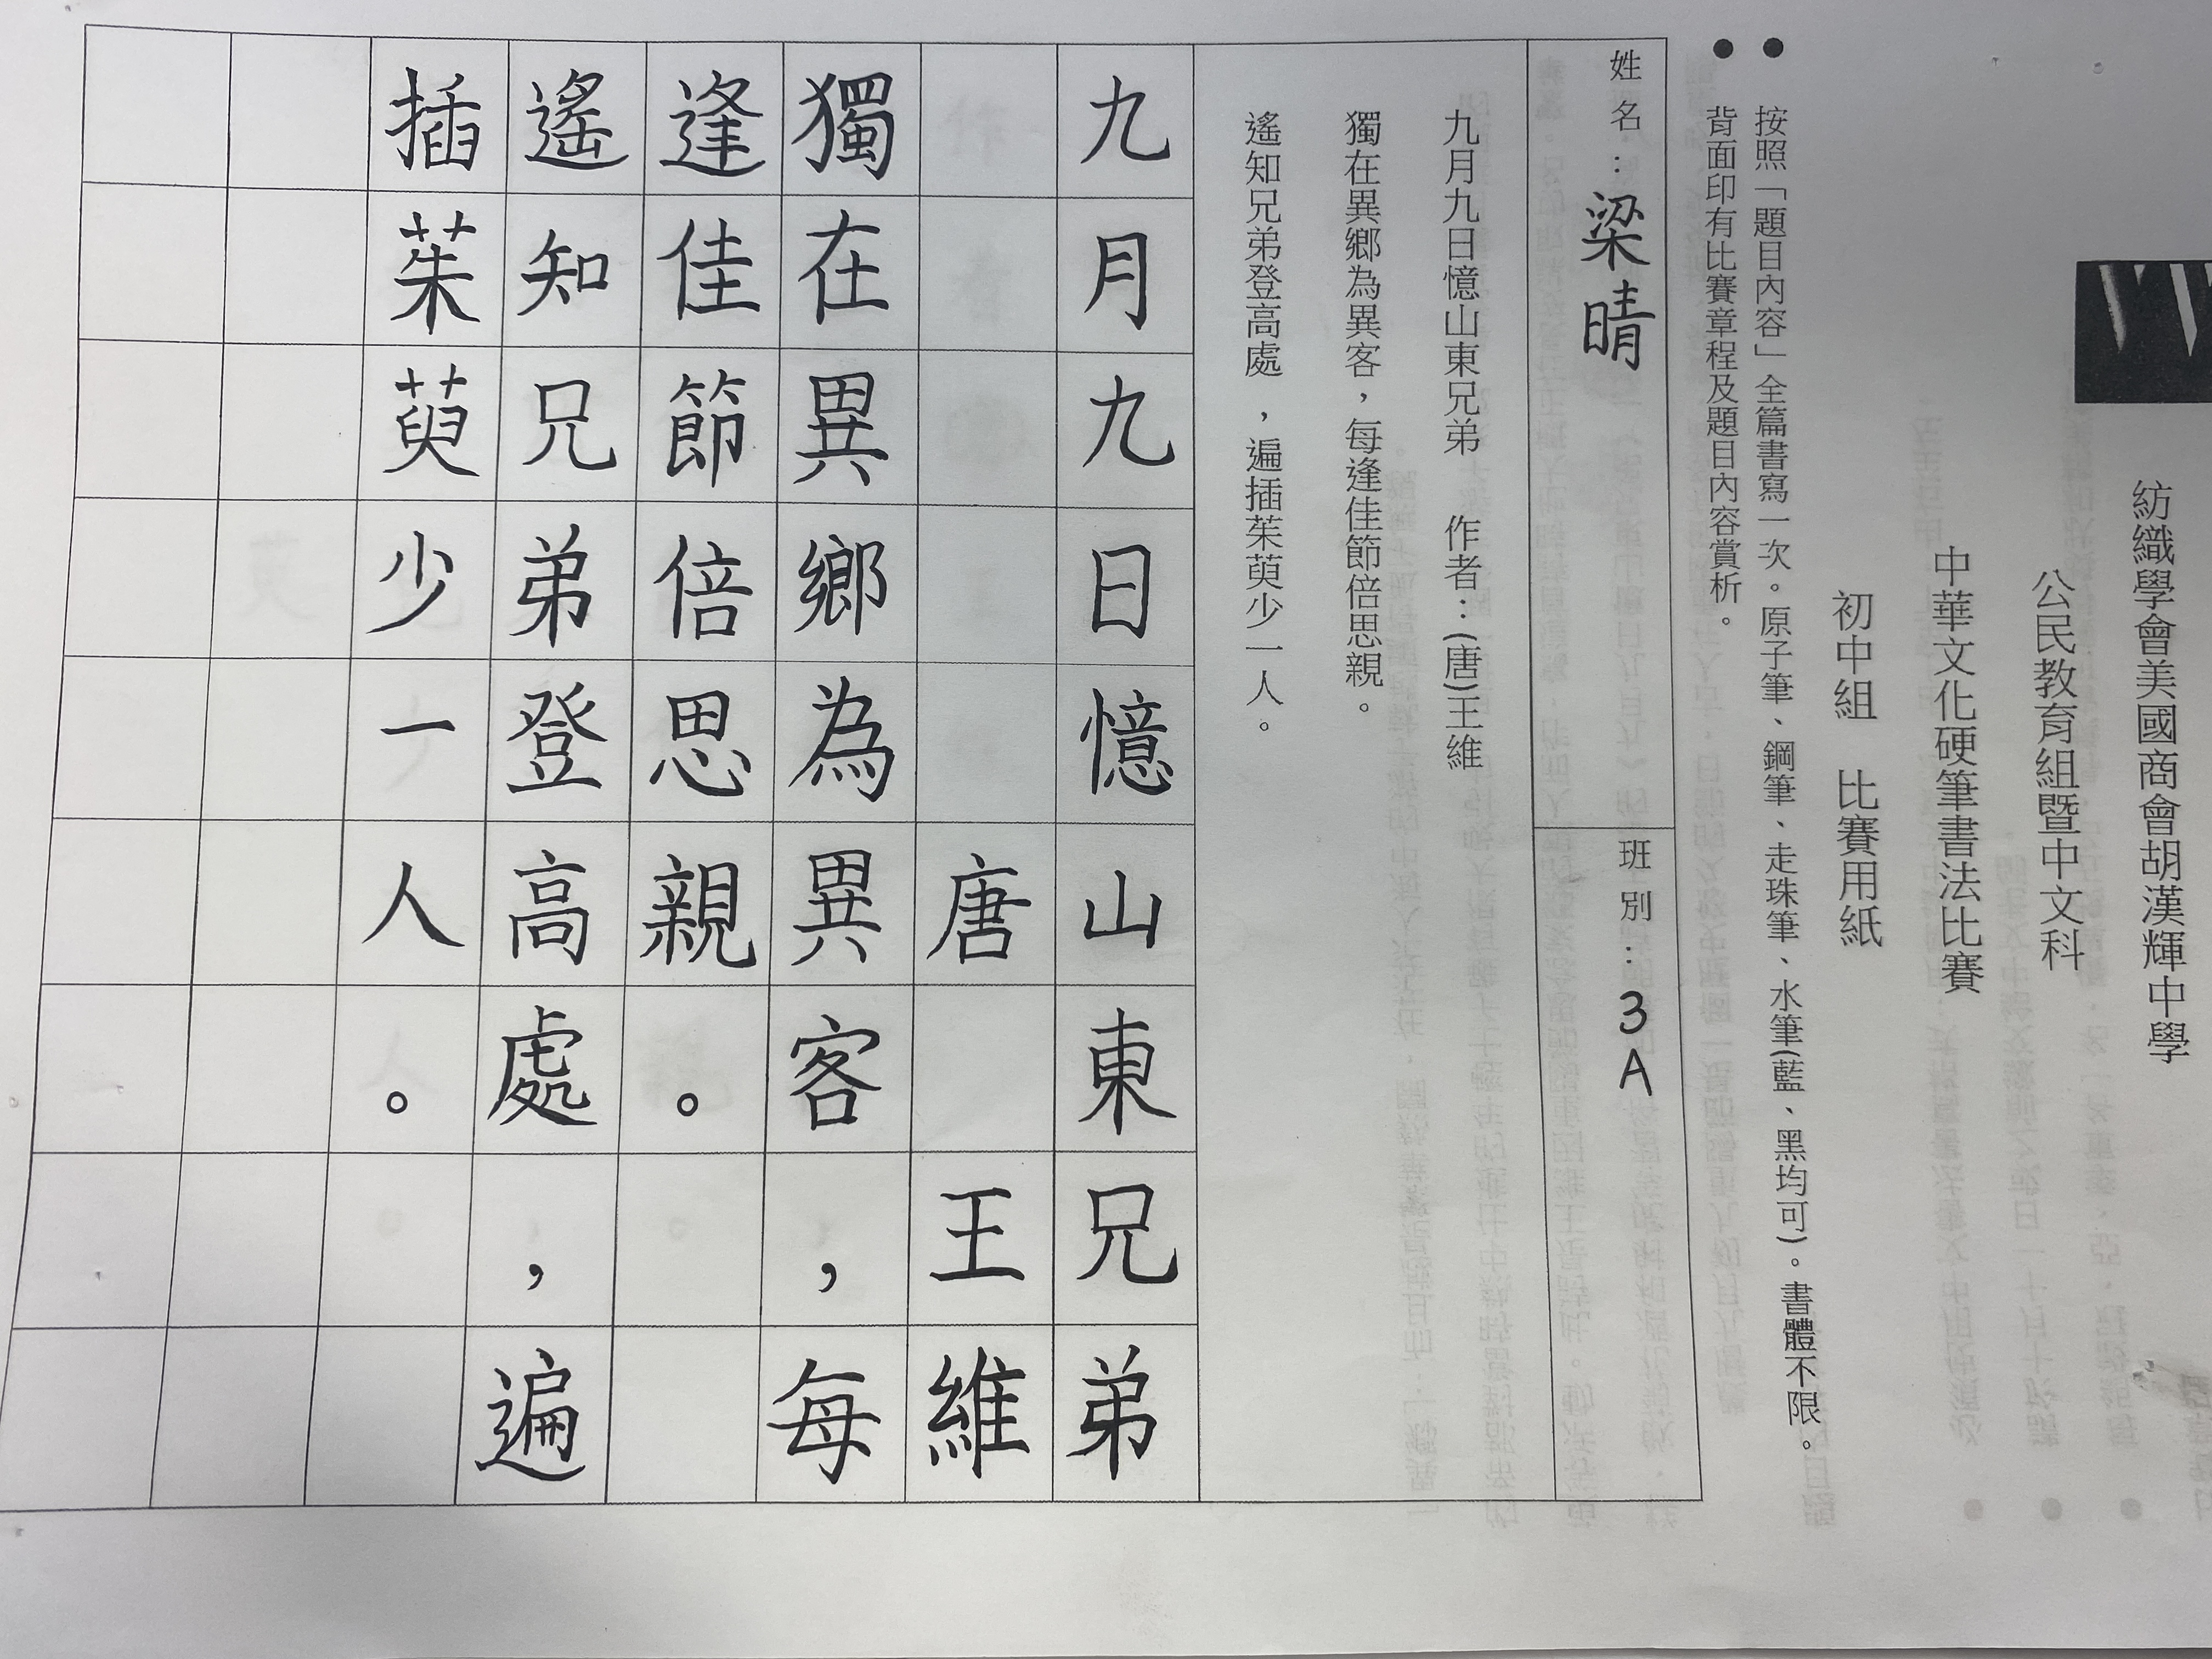 紡織學會美國商會胡漢輝中學
公民教育組暨中文科
中華文化硬筆書法比賽
初中組 比賽用紙
● 按照「題目內容」全篇書寫一次。原子筆、鋼筆、走珠筆、水筆(藍、黑均可)。書體不限。
● 背面印有比賽章程及題目內容賞析。
姓名：梁晴 班別：3A
九月九日憶山東兄弟 作者：(唐)王維
獨在異鄉為異客，每逢佳節倍思親。
遙知兄弟登高處，遍插茱萸少一人。
九月九日憶山東兄弟
唐 王維
獨在異鄉為異客，每
逢佳節倍思親。
遙知兄弟登高處，遍
插茱萸少一人。